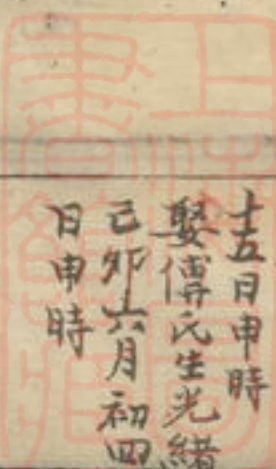 十五日申時
娶傅氏生光緒
己卯六月初四
日申時